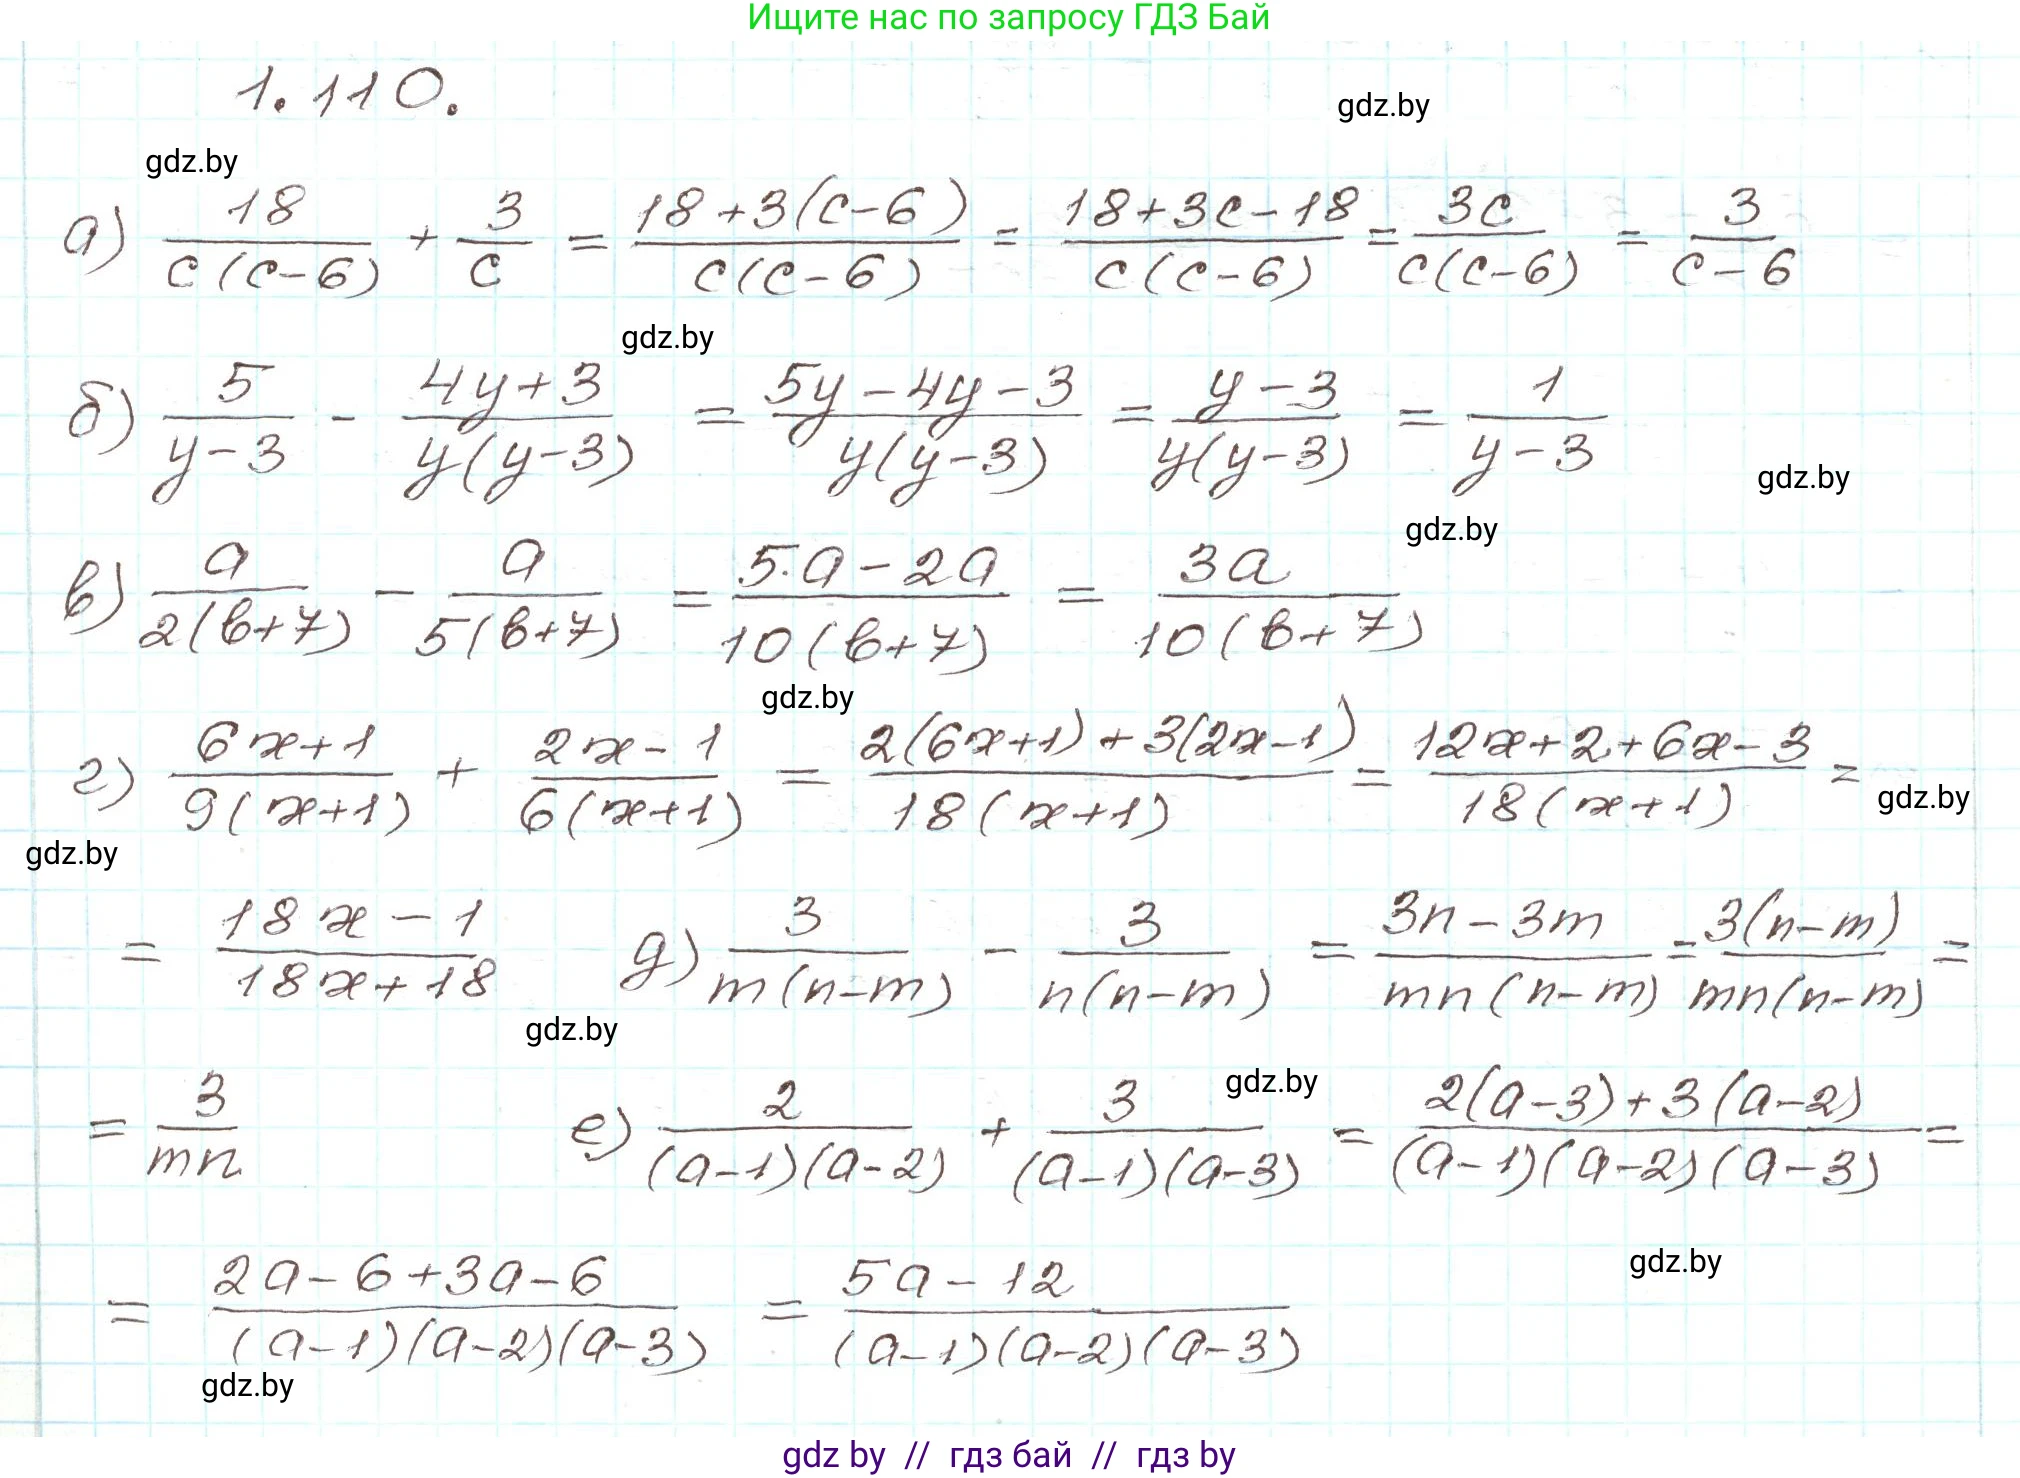 Ищите нас по запросу ГДЗ Бай
1.110.
gdz.by
gdz.by
а) 18/(c(c-6)) + 3/c = (18+3(c-6))/(c(c-6)) = (18+3c-18)/(c(c-6)) = 3c/(c(c-6)) = 3/(c-6)
gdz.by
б) 5/(y-3) - (4y+3)/(y(y-3)) = (5y-4y-3)/(y(y-3)) = (y-3)/(y(y-3)) = 1/(y-3)
gdz.by
gdz.by
в) a/(2(b+7)) - a/(5(b+7)) = (5·a-2a)/(10(b+7)) = 3a/(10(b+7))
gdz.by
г) (6x+1)/(9(x+1)) + (2x-1)/(6(x+1)) = (2(6x+1)+3(2x-1))/(18(x+1)) = (12x+2+6x-3)/(18(x+1)) =
gdz.by
gdz.by
= (18x-1)/(18x+18) д) 3/(m(n-m)) - 3/(n(n-m)) = (3n-3m)/(mn(n-m)) = 3(n-m)/(mn(n-m)) =
gdz.by
gdz.by
= 3/(mn) е) 2/((a-1)(a-2)) + 3/((a-1)(a-3)) = (2(a-3)+3(a-2))/((a-1)(a-2)(a-3)) =
gdz.by
= (2a-6+3a-6)/((a-1)(a-2)(a-3)) = (5a-12)/((a-1)(a-2)(a-3))
gdz.by
gdz by // гдз бай // гдз by